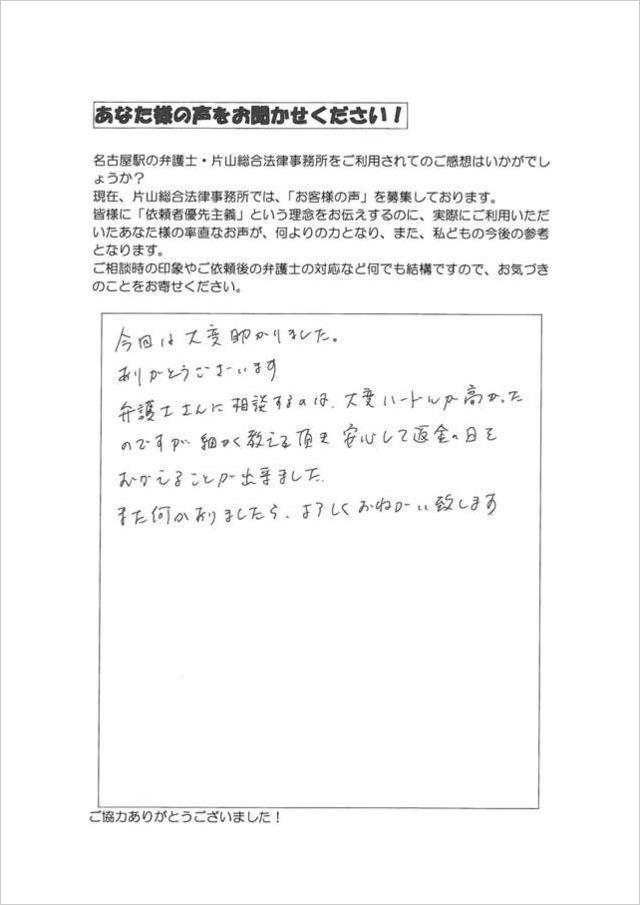 あなた様の声をお聞かせください！
名古屋駅の弁護士・片山総合法律事務所をご利用されてのご感想はいかがでし
ょうか？
現在、片山総合法律事務所では、「お客様の声」を募集しております。
皆様に「依頼者優先主義」という理念をお伝えするのに、実際にご利用いただ
いたあなた様の率直なお声が、何よりの力となり、また、私どもの今後の参考
となります。
ご相談時の印象やご依頼後の弁護士の対応など何でも結構ですので、お気づき
のことをお寄せください。
今回は大変助かりました。
ありがとうございます
弁護士さんに相談するのは、大変ハードルが高かった
のですが 細かく教えて頂き 安心して返金の日を
むかえることが出来ました。
また何かありましたら、よろしくおねがい致します
ご協力ありがとうございました！